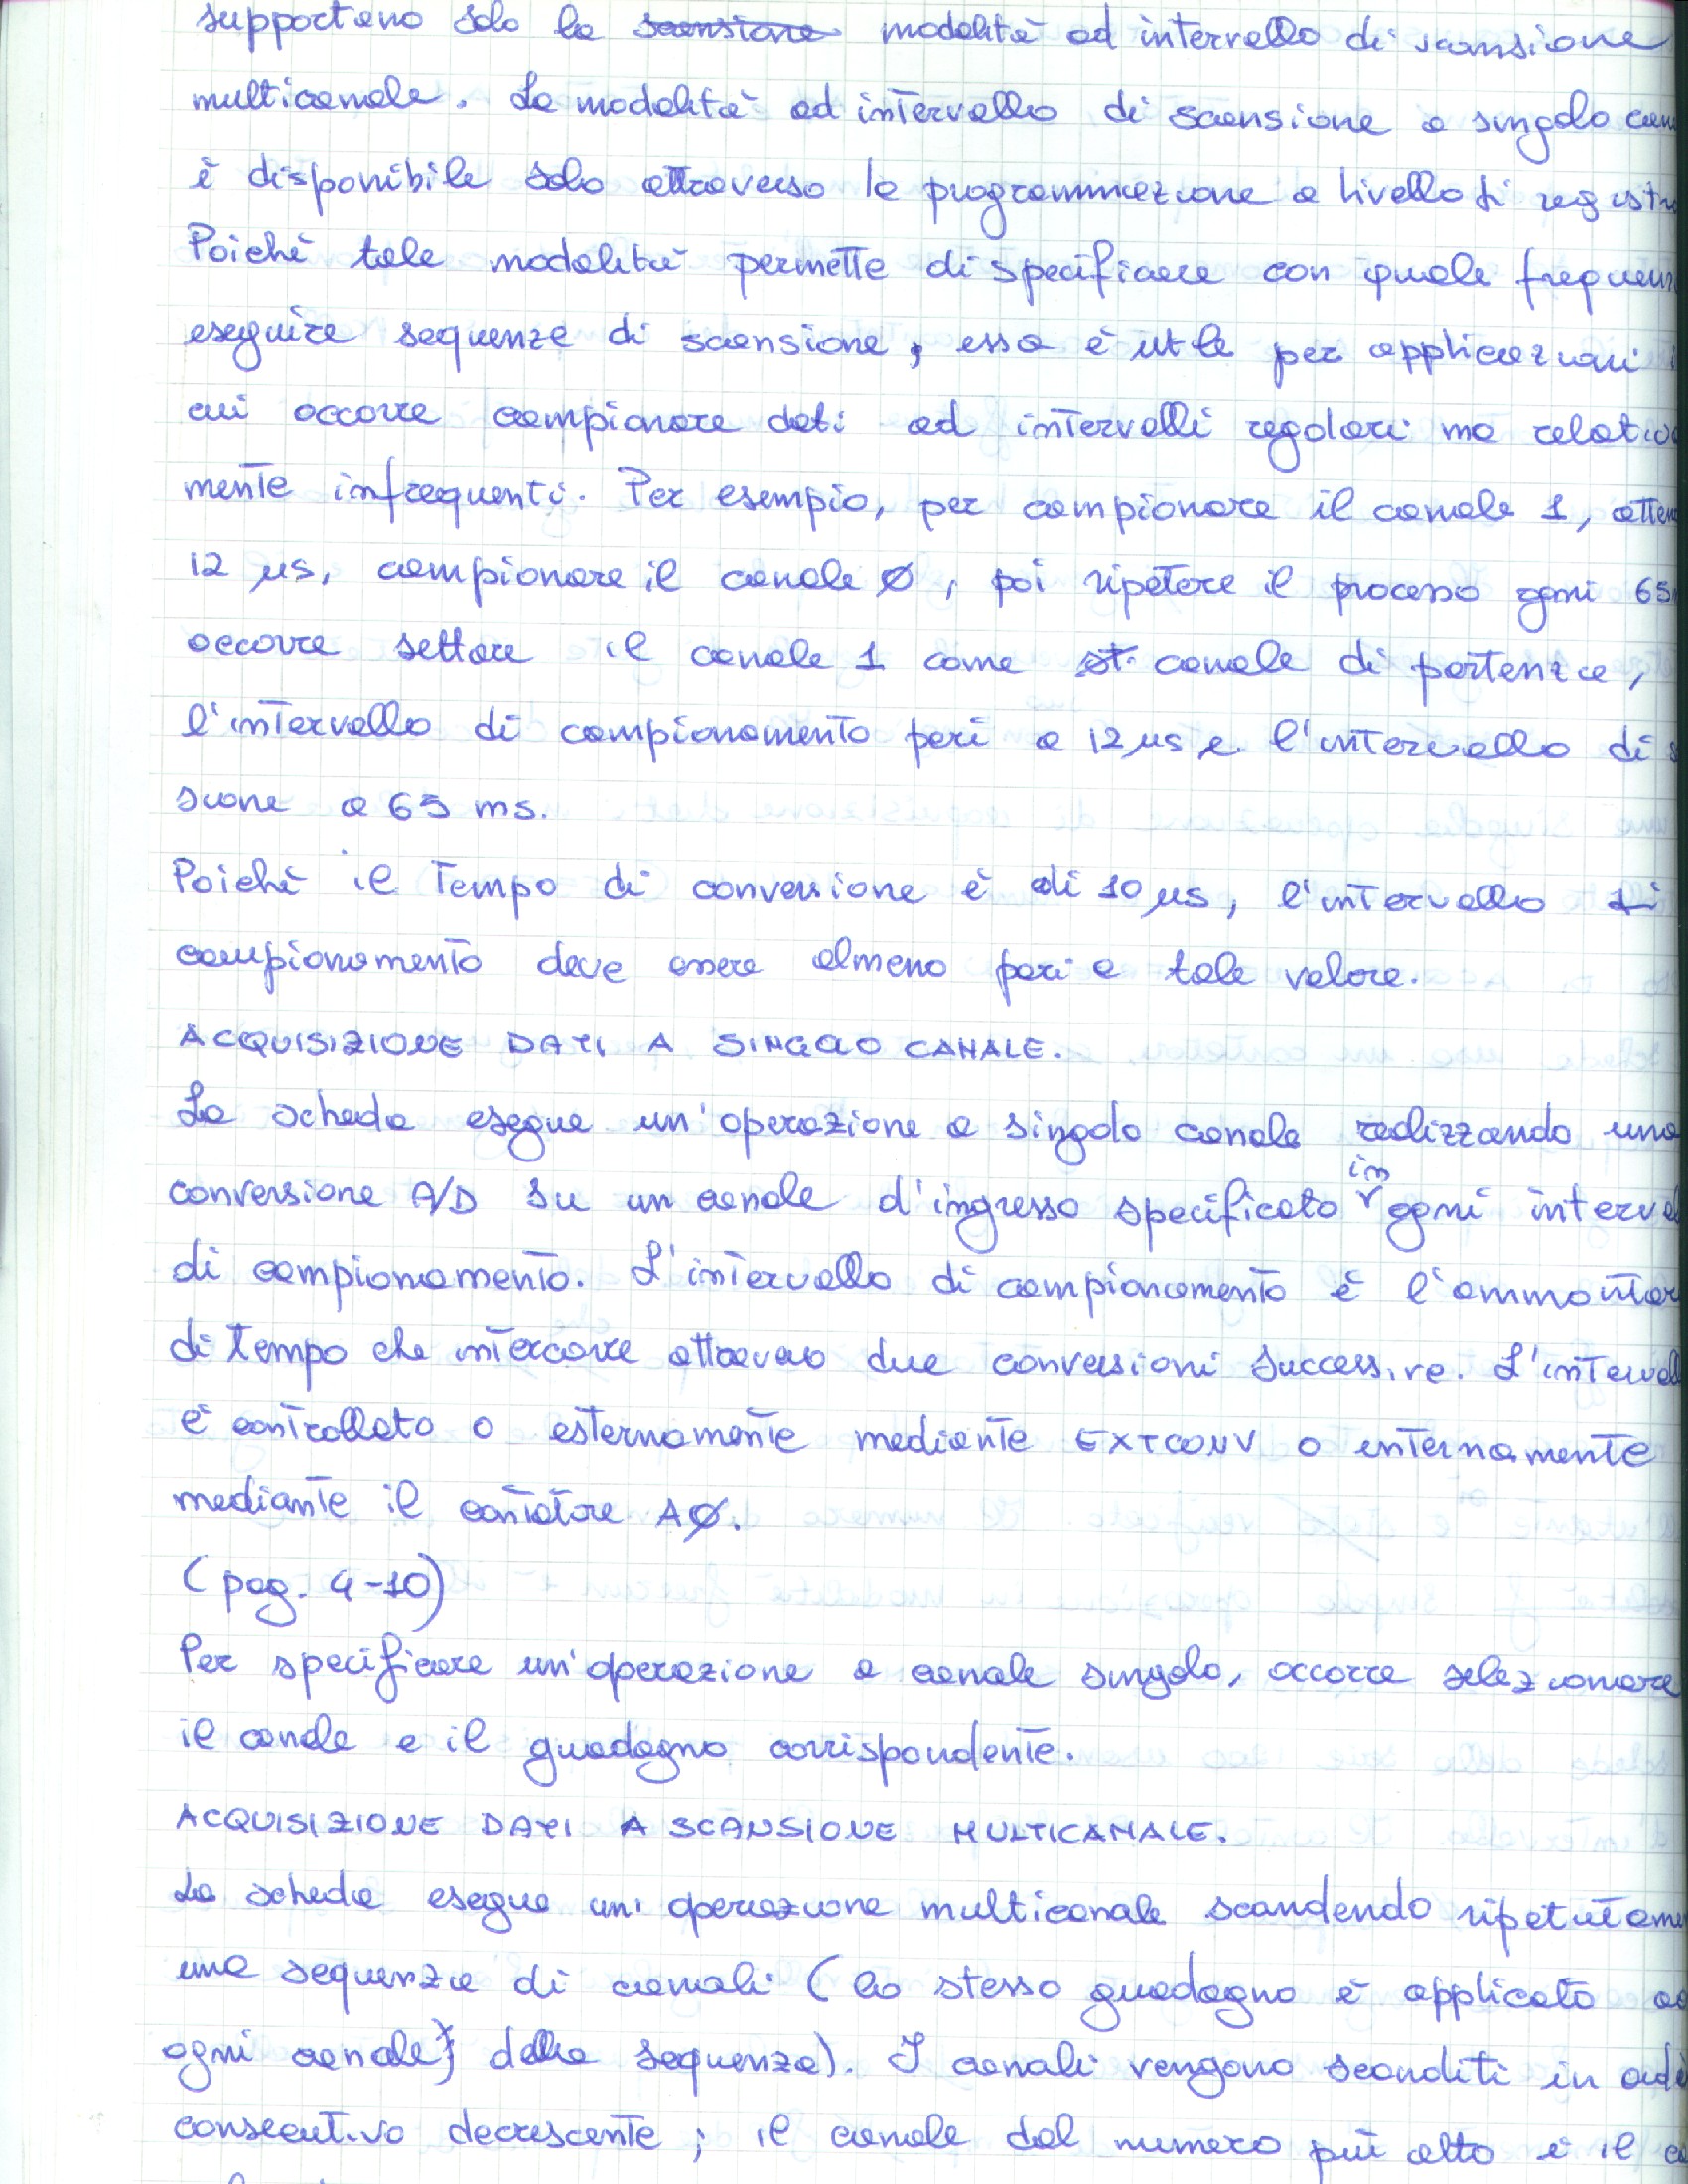 supportano solo la scansione modalità ad intervallo di scansione
multicanale. La modalità ad intervallo di scansione a singolo can
è disponibile solo attraverso la programmazione a livello di registr
Poichè tale modalità permette di specificare con quale frequen
eseguire sequenze di scansione, essa è utile per applicazioni
cui occorre campionare dati ad intervalli regolari ma relativa
mente infrequenti. Per esempio, per campionare il canale 1, atten
12 µs, campionare il canale Ø, poi ripetere il processo ogni 65
occorre settare il canale 1 come st. canale di partenza,
l'intervallo di campionamento pari a 12 µs e l'intervallo di s
sione a 65 ms.
Poichè il tempo di conversione è di 10 µs, l'intervallo di
campionamento deve essere almeno pari a tale valore.
ACQUISIZIONE DATI A SINGOLO CANALE.
La scheda esegue un'operazione a singolo canale realizzando una
conversione A/D su un canale d'ingresso specificato in ogni interval
di campionamento. L'intervallo di campionamento è l'ammontar
di tempo che intercorre attraverso due conversioni successive. L'interval
è controllato o esternamente mediante EXTCONV o internamente
mediante il contatore AØ.
(pag. 4-10)
Per specificare un'operazione a canale singolo, occorre selezionare
il canale e il guadagno corrispondente.
ACQUISIZIONE DATI A SCANSIONE MULTICANALE.
La scheda esegue un'operazione multicanale scandendo ripetutame
una sequenza di canali (lo stesso guadagno è applicato ad
ogni canale della sequenza). I canali vengono scanditi in ordi
consecutivo decrescente; il canale dal numero più alto è il c